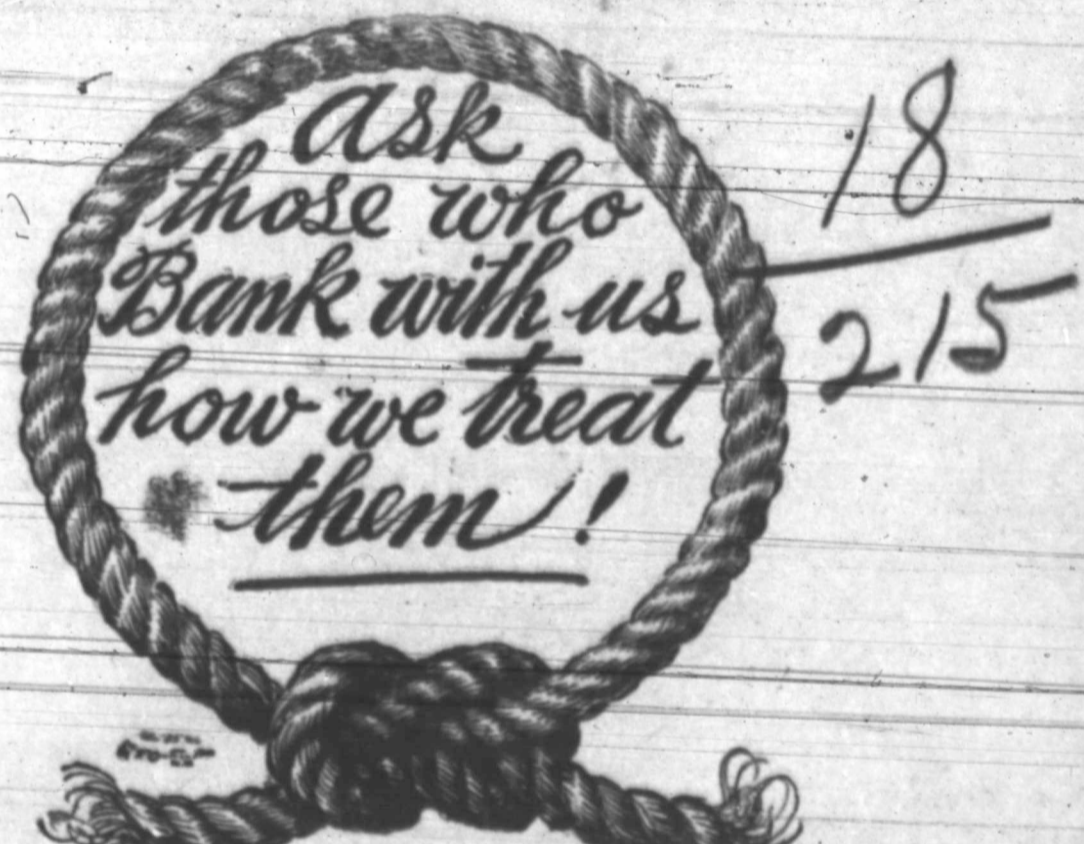 Ask
those who
Bank with us
how we treat
them!
18
215